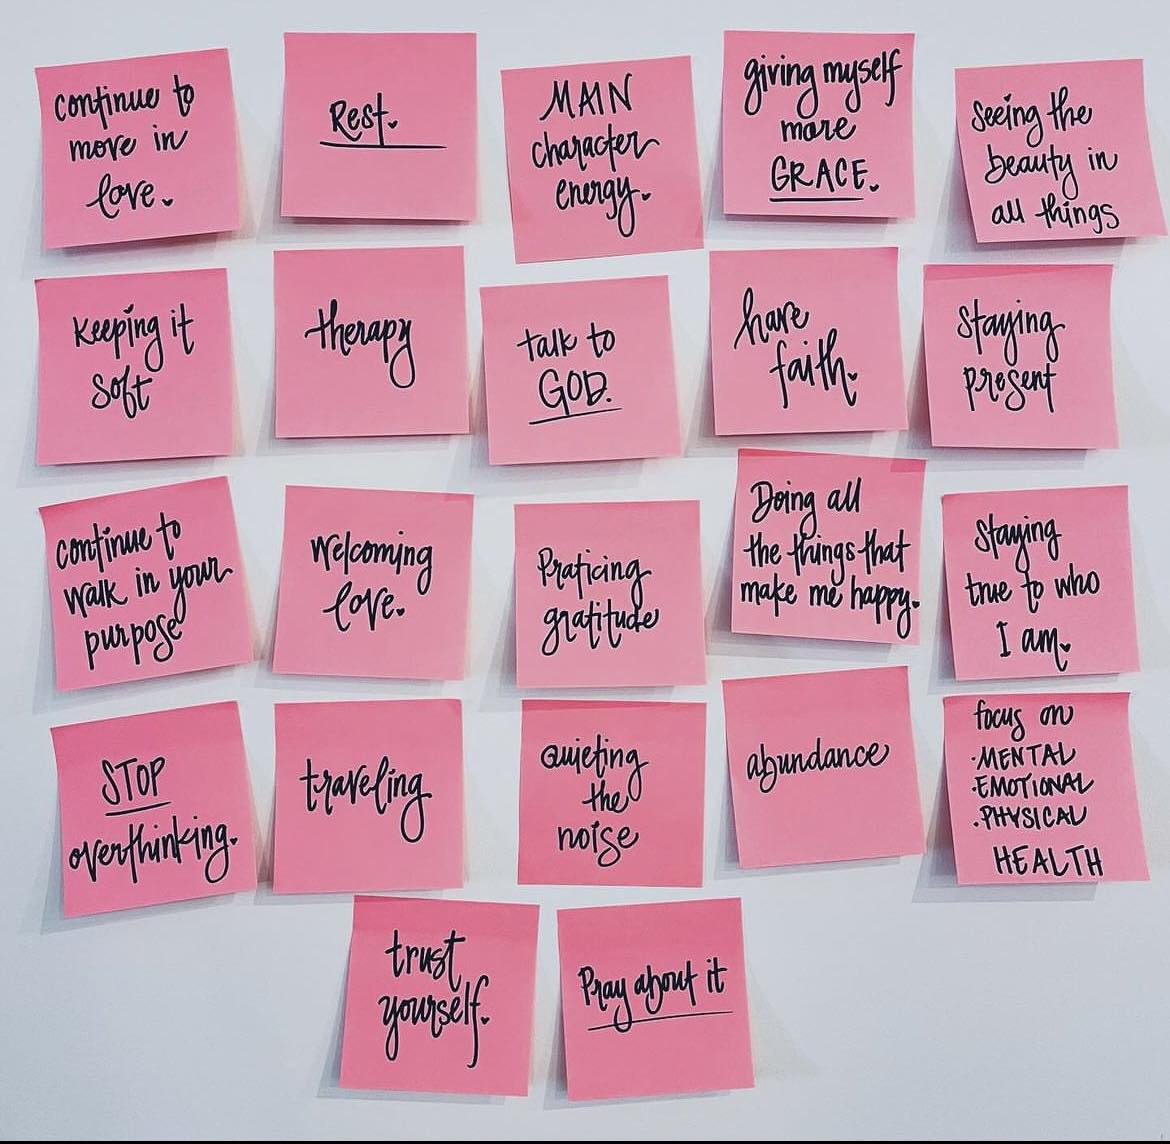 continue to
move in
love.
Rest.
MAIN
character
energy.
giving myself
more
GRACE.
Seeing the
beauty in
all things
Keeping it
soft
therapy
talk to
GOD.
have
faith.
Staying
present
continue to
walk in your
purpose
Welcoming
love.
Praticing
gratitude
Doing all
the things that
make me happy.
Staying
true to who
I am.
STOP
overthinking.
traveling
Quieting
the
noise
abundance
focus on
·MENTAL
·EMOTIONAL
·PHYSICAL
HEALTH
trust
yourself.
Pray about it